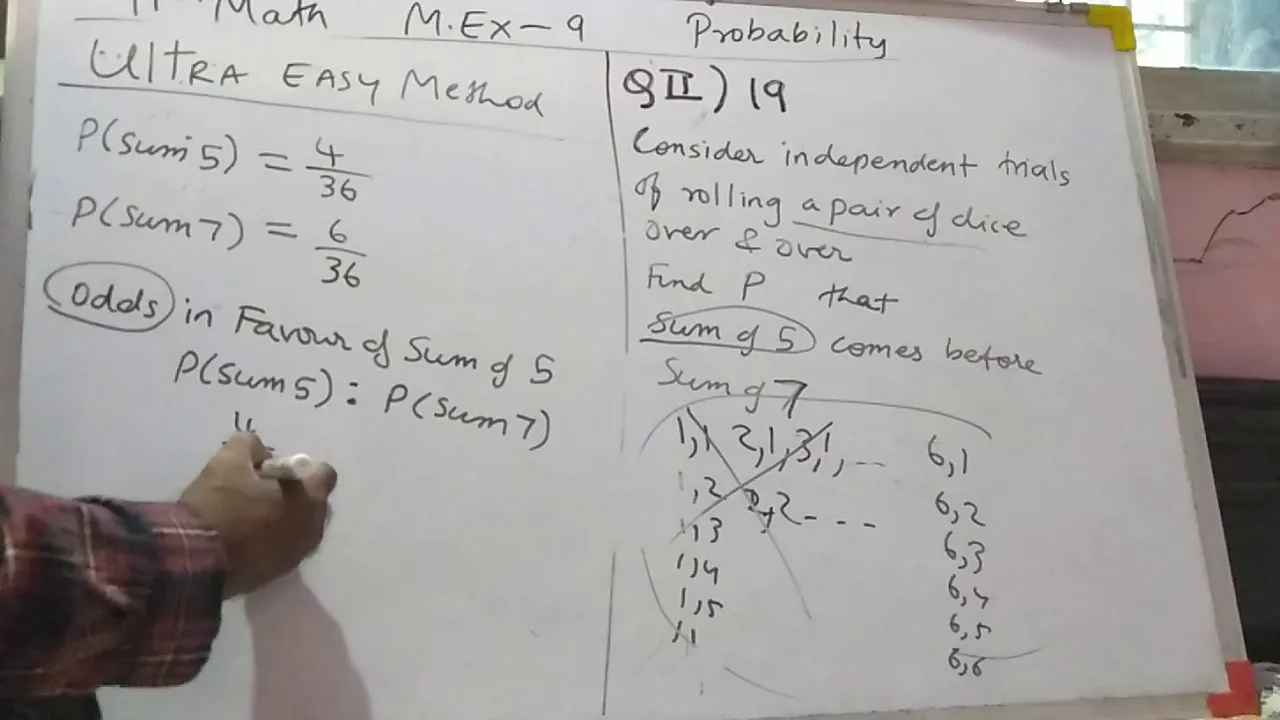 Math M.Ex-9 Probability
ULTRA EASY Method
P(sum 5) = 4/36
P(sum 7) = 6/36
Odds in Favour of Sum of 5
P(sum 5) : P(sum 7)
4
Q II) 19
Consider independent trials
of rolling a pair of dice
over & over
Find P that
Sum of 5 comes before
Sum of 7
1,1 2,1, 3,1, ... 6,1
1,2 2,2 - - - 6,2
1,3 6,3
1,4 6,4
1,5 6,5
6,6